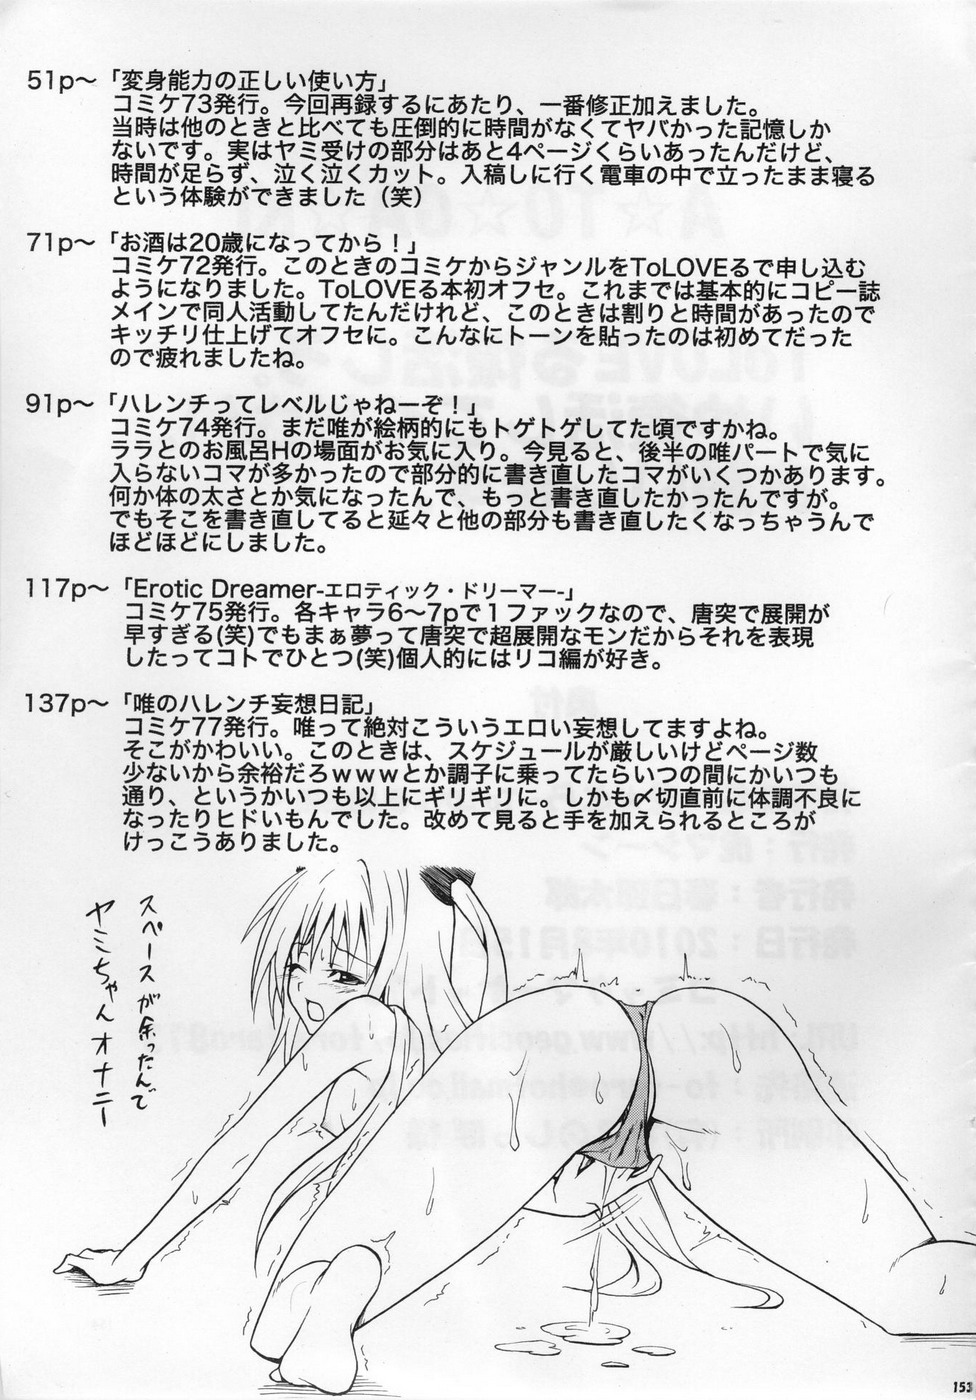 51p～「変身能力の正しい使い方」
コミケ73発行。今回再録するにあたり、一番修正加えました。
当時は他のときと比べても圧倒的に時間がなくてヤバかった記憶しか
ないです。実はヤミ受けの部分はあと4ページくらいあったんだけど、
時間が足らず、泣く泣くカット。入稿しに行く電車の中で立ったまま寝る
という体験ができました（笑）
71p～「お酒は20歳になってから！」
コミケ72発行。このときのコミケからジャンルをToLOVEるで申し込む
ようになりました。ToLOVEる本初オフセ。これまでは基本的にコピー誌
メインで同人活動してたんだけれど、このときは割りと時間があったので
キッチリ仕上げてオフセに。こんなにトーンを貼ったのは初めてだった
ので疲れましたね。
91p～「ハレンチってレベルじゃねーぞ！」
コミケ74発行。まだ唯が絵柄的にもトゲトゲしてた頃ですかね。
ララとのお風呂Hの場面がお気に入り。今見ると、後半の唯パートで気に
入らないコマが多かったので部分的に書き直したコマがいくつかあります。
何か体の太さとか気になったんで、もっと書き直したかったんですが。
でもそこを書き直してると延々と他の部分も書き直したくなっちゃうんで
ほどほどにしました。
117p～「Erotic Dreamer-エロティック・ドリーマー-」
コミケ75発行。各キャラ6～7pで1ファックなので、唐突で展開が
早すぎる(笑)でもまぁ夢って唐突で超展開なモンだからそれを表現
したってコトでひとつ(笑)個人的にはリコ編が好き。
137p～「唯のハレンチ妄想日記」
コミケ77発行。唯って絶対こういうエロい妄想してますよね。
そこがかわいい。このときは、スケジュールが厳しいけどページ数
少ないから余裕だろｗｗｗとか調子に乗ってたらいつの間にかいつも
通り、というかいつも以上にギリギリに。しかも〆切直前に体調不良に
なったりヒドいもんでした。改めて見ると手を加えられるところが
けっこうありました。
スペースが余ったんで
ヤミちゃんオナニー
153